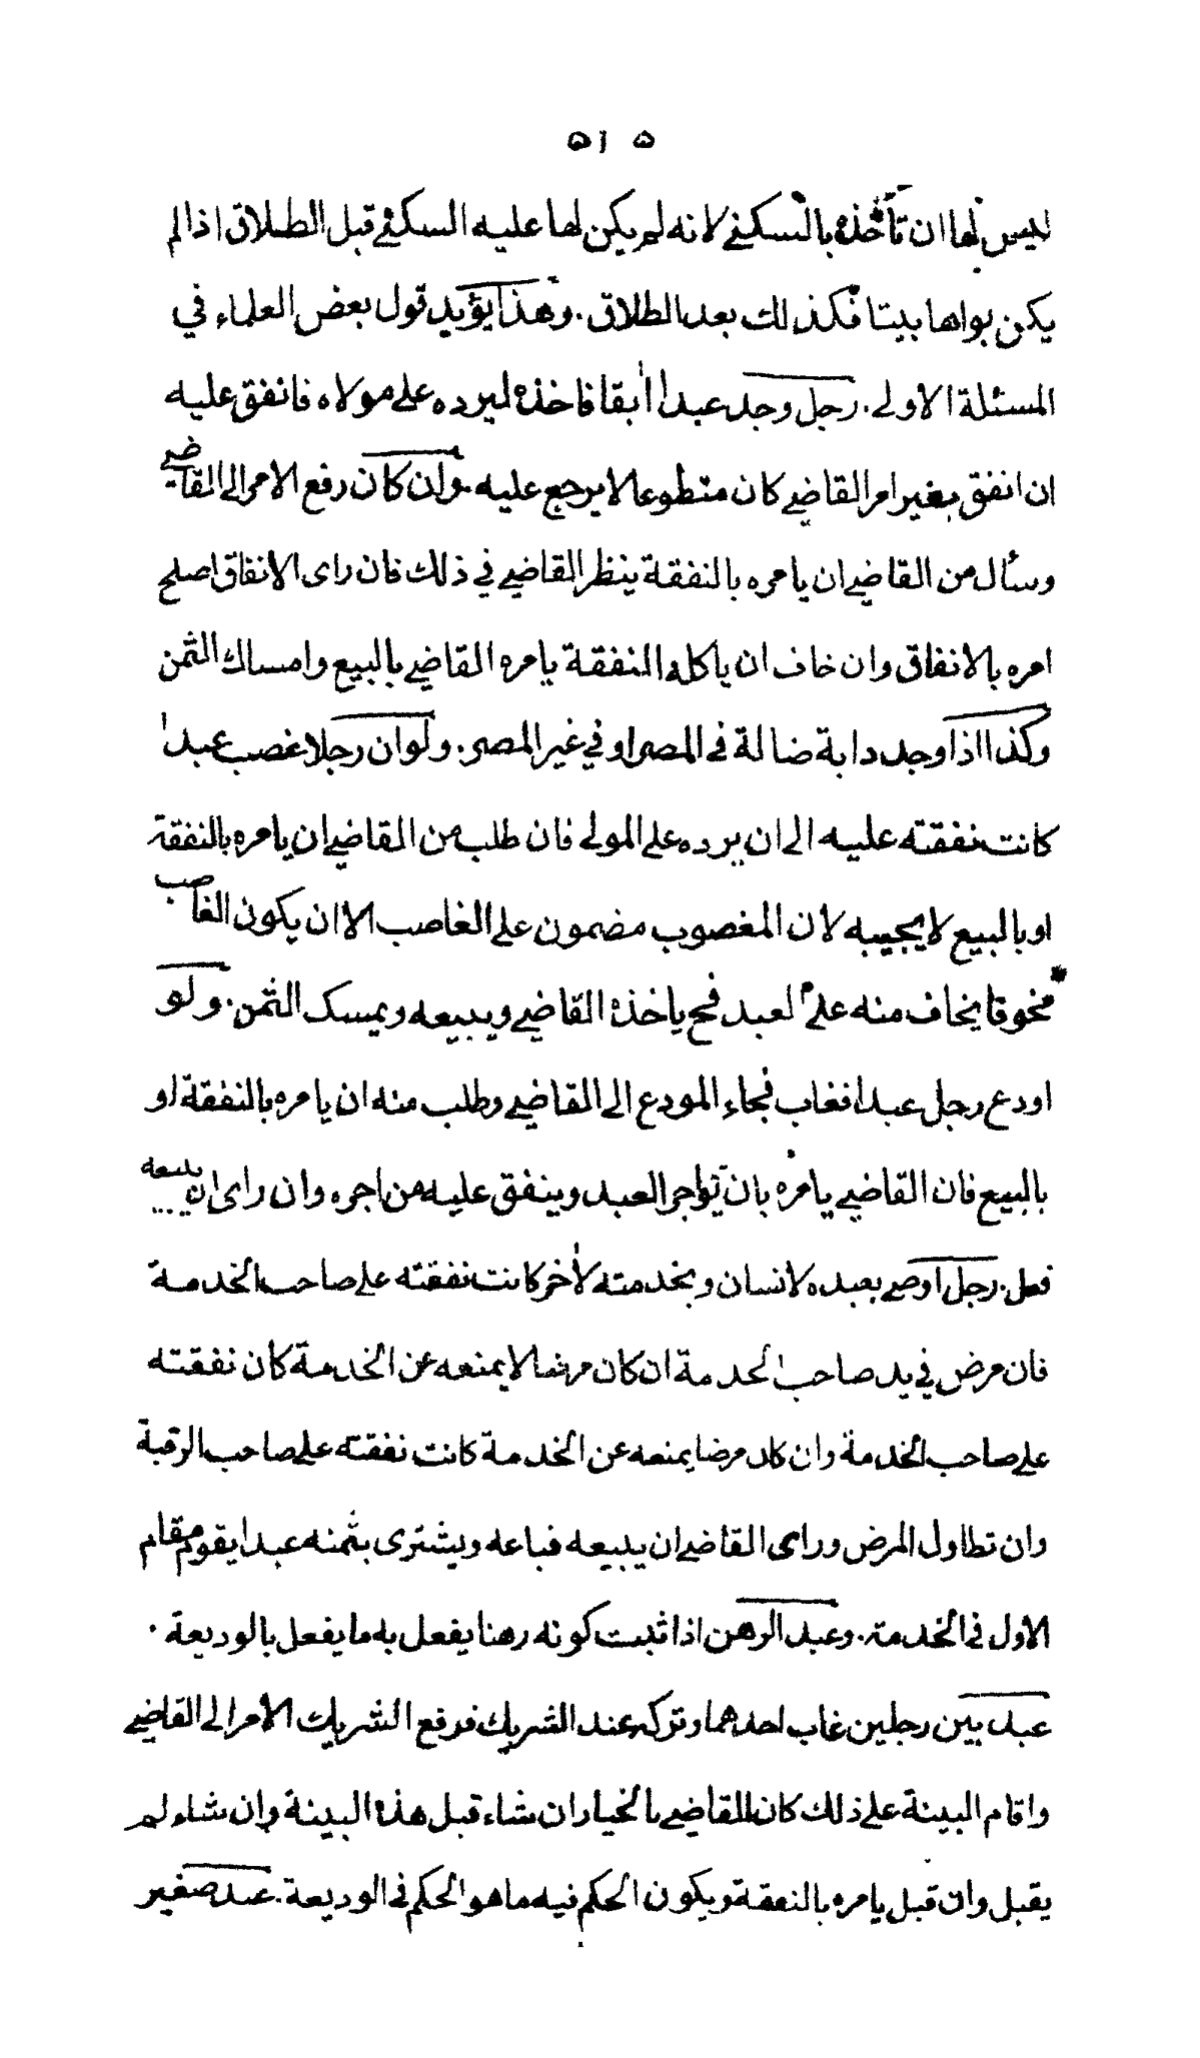 ٥١٥
ليس لها ان تأخذه بالسكنى لانه لم يكن لها عليه السكنى قبل الطلاق اذا لم
يكن بواها بيتا فكذلك بعد الطلاق. وهذا يؤيد قول بعض العلماء في
المسئلة الاولى. رجل وجد عبدا اٰبقا فاخذه ليرده على مولاه فانفق عليه
ان انفق بغير امر القاضي كان متطوعا لا يرجع عليه. وان كان رفع الامر الى القاضي
وسأل من القاضي ان يامره بالنفقة ينظر القاضي في ذلك فان راى الانفاق اصلح
امره بالانفاق وان خاف ان ياكله النفقة يامره القاضي بالبيع وامساك الثمن
وكذا اذا وجد دابة ضالة في المصر او في غير المصر. ولو ان رجلا غصب عبدا
كانت نفقته عليه الى ان يرده على المولى فان طلب من القاضي ان يامره بالنفقة
او بالبيع لا يجيبه لان المغصوب مضمون على الغاصب الا ان يكون الغاصب
مخوفا يخاف منه على العبد فح ياخذه القاضي ويبيعه ويمسك الثمن. ولو
اودع رجل عبدا فغاب فجاء المودع الى القاضي وطلب منه ان يامره بالنفقة او
بالبيع فان القاضي يامره بان يؤاجر العبد وينفق عليه من اجره وان راى ان يبيعه
فعل. رجل اوصى بعبده لانسان وبخدمته لاٰخر كانت نفقته على صاحب الخدمة
فان مرض في يد صاحب الخدمة ان كان مرضا لا يمنعه عن الخدمة كان نفقته
على صاحب الخدمة وان كان مرضا يمنعه عن الخدمة كانت نفقته على صاحب الرقبة
وان تطاول المرض وراى القاضي ان يبيعه فباعه ويشترى بثمنه عبدا يقوم مقام
الاول في الخدمة. وعبد الرهن اذا ثبت كونه رهنا يفعل به ما يفعل بالوديعة.
عبد بين رجلين غاب احدهما وتركه عند الشريك فرفع الشريك الأمر الى القاضي
واقام البينة على ذلك كان القاضي بالخيار ان شاء قبل هذه البينة وان شاء لم
يقبل وان قبل يامره بالنفقة ويكون الحكم فيه ما هو الحكم في الوديعة. عبد صغير